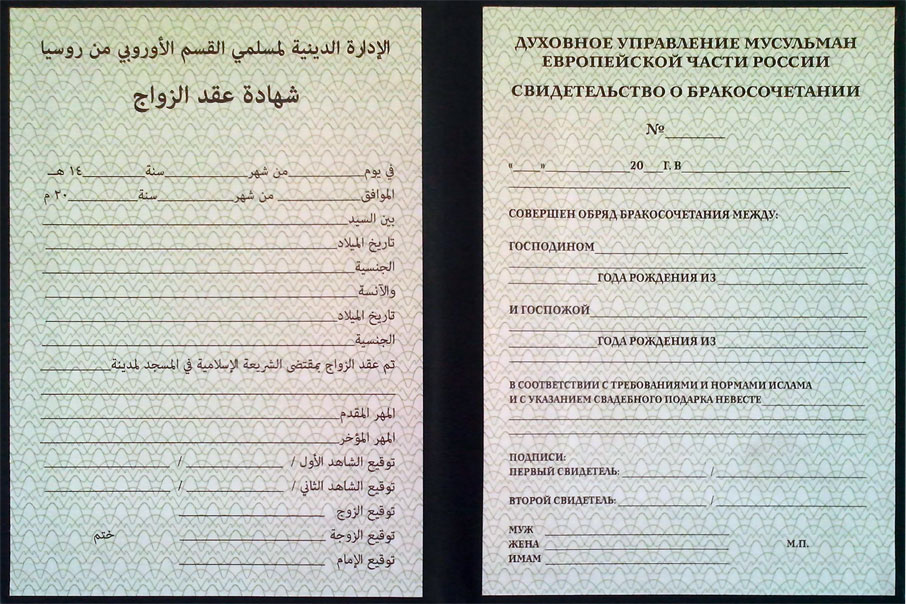 الإدارة الدينية لمسلمي القسم الأوروبي من روسيا
شهادة عقد الزواج
في يوم__________من شهر__________سنة__________١٤ هـ
الموافق__________ من شهر__________سنة__________٢٠ م
بين السيد__________
تاريخ الميلاد__________
الجنسية__________
والآنسة__________
تاريخ الميلاد__________
الجنسية__________
تم عقد الزواج بمقتضى الشريعة الإسلامية في المسجد لمدينة__________
المهر المقدم__________
المهر المؤخر__________
توقيع الشاهد الأول / __________ / __________
توقيع الشاهد الثاني / __________ / __________
توقيع الزوج __________
توقيع الزوجة __________ ختم
توقيع الإمام __________
ДУХОВНОЕ УПРАВЛЕНИЕ МУСУЛЬМАН
ЕВРОПЕЙСКОЙ ЧАСТИ РОССИИ
СВИДЕТЕЛЬСТВО О БРАКОСОЧЕТАНИИ
№________
"____" __________ 20___Г. В__________
СОВЕРШЕН ОБРЯД БРАКОСОЧЕТАНИЯ МЕЖДУ:
ГОСПОДИНОМ__________
__________ГОДА РОЖДЕНИЯ ИЗ__________
И ГОСПОЖОЙ__________
__________ГОДА РОЖДЕНИЯ ИЗ__________
В СООТВЕТСТВИИ С ТРЕБОВАНИЯМИ И НОРМАМИ ИСЛАМА
И С УКАЗАНИЕМ СВАДЕБНОГО ПОДАРКА НЕВЕСТЕ__________
ПОДПИСИ:
ПЕРВЫЙ СВИДЕТЕЛЬ: __________ / __________
ВТОРОЙ СВИДЕТЕЛЬ: __________ / __________
МУЖ __________
ЖЕНА __________ М.П.
ИМАМ __________